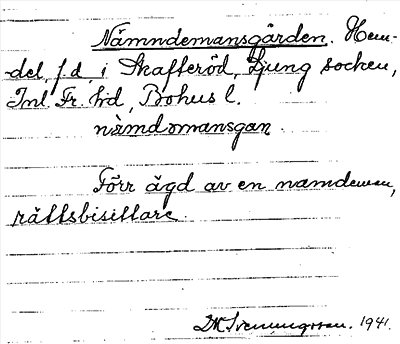 Nämndemansgården. Hem-
del, f.d., i Skafteröd, Ljung socken,
Inl. Fr. hd, Bohus l.
nämdomansgan.
Förr ägd av en namdeman,
rättsbisittare.
1941.